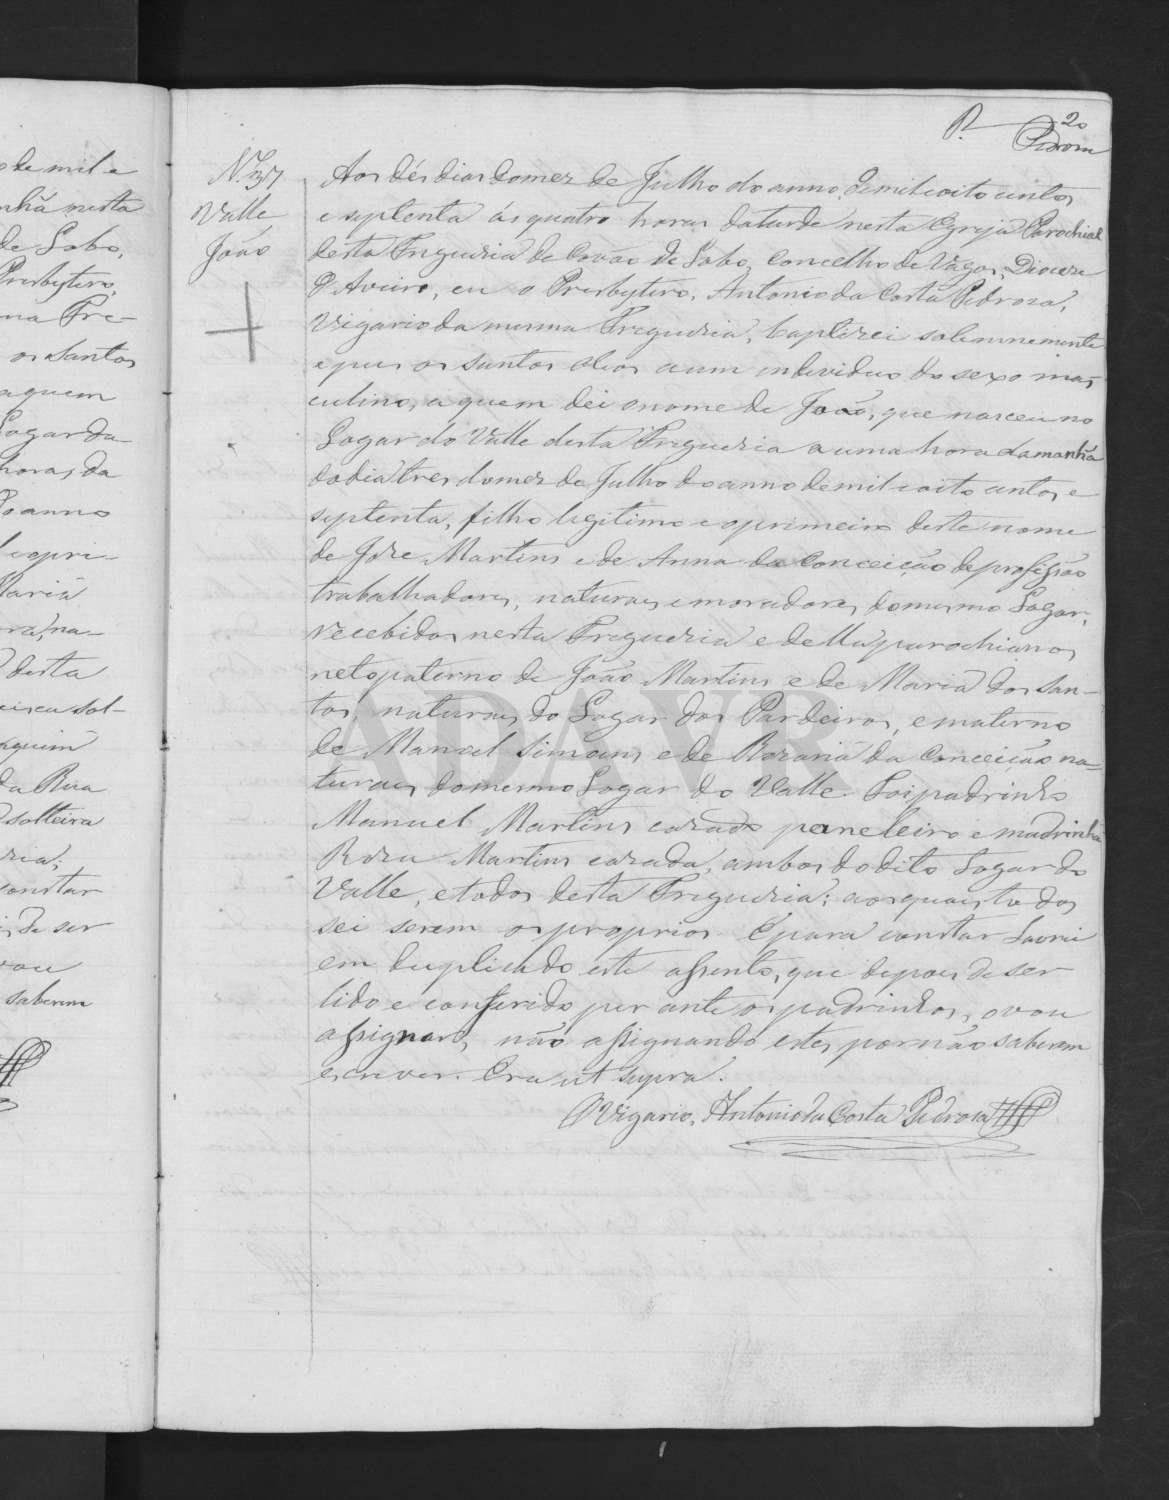 de mil e
nhã nesta
de Sobo,
Presbytero,
na Fre-
os Santos
aquem
Logar da
horas da
do anno
e opri-
Maria
na-
desta
sol-
aquim
da Rua
solteira
ria;
constar
de ser
vou
saberem
P. 20
Pedrosa
N.º 37
Valle
João
Aos dés dias do mez de Julho do anno de mil oito centos
e septenta ás quatro horas da tarde nesta Egreja Parochial
desta Freguezia de Covão de Lobo, Concelho de Vagos, Diocese
d'Aveiro, eu o Presbytero, Antonio da Costa Pedrosa,
Vigario da mesma Freguezia, baptizei solemnemente
e pus os santos oleos a um individuo do sexo mas-
culino, a quem dei o nome de João, que nasceu no
Logar do Valle desta Freguezia a uma hora da manhã
do dia tres do mez de Julho do anno de mil oito centos e
septenta, filho legitimo e o primeiro deste nome
de Joze Martins e de Anna da Conceição de profissão
trabalhadores, naturaes e moradores do mesmo Logar,
recebidos nesta Freguezia e della parochianos,
neto paterno de João Martins e de Maria dos San-
tos, naturaes do Logar dos Pardeiros, e materno
de Manoel Simoens e de Rozaria da Conceição na-
turaes do mesmo Logar do Valle. Foi padrinho
Manuel Martins cazado paneleiro e madrinha
Roza Martins cazada, ambos do dito Logar do
Valle, e todos desta Freguezia; aos quais todos
sei serem os proprios. E para constar Lavrei
em duplicado este assento, que depois de ser
lido e conferido perante os padrinhos, o vou
assignar, não assignando estes por não saberem
escrever. Era ut supra.
O Vigario, Antonio da Costa Pedrosa
ADAVR